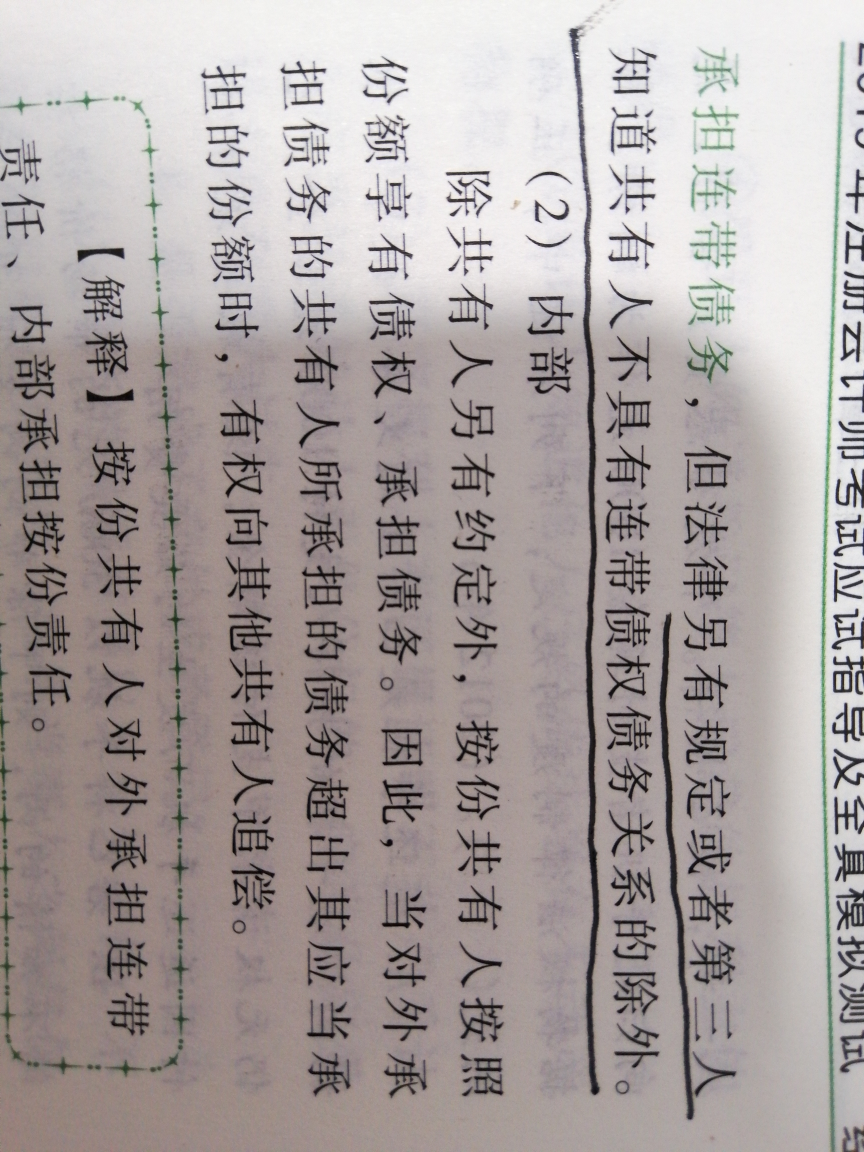 年注册会计师考试应试指导及全真模拟测试
承担连带债务，但法律另有规定或者第三人
知道共有人不具有连带债权债务关系的除外。
（2）内部
除共有人另有约定外，按份共有人按照
份额享有债权、承担债务。因此，当对外承
担债务的共有人所承担的债务超出其应当承
担的份额时，有权向其他共有人追偿。
【解释】按份共有人对外承担连带
责任、内部承担按份责任。